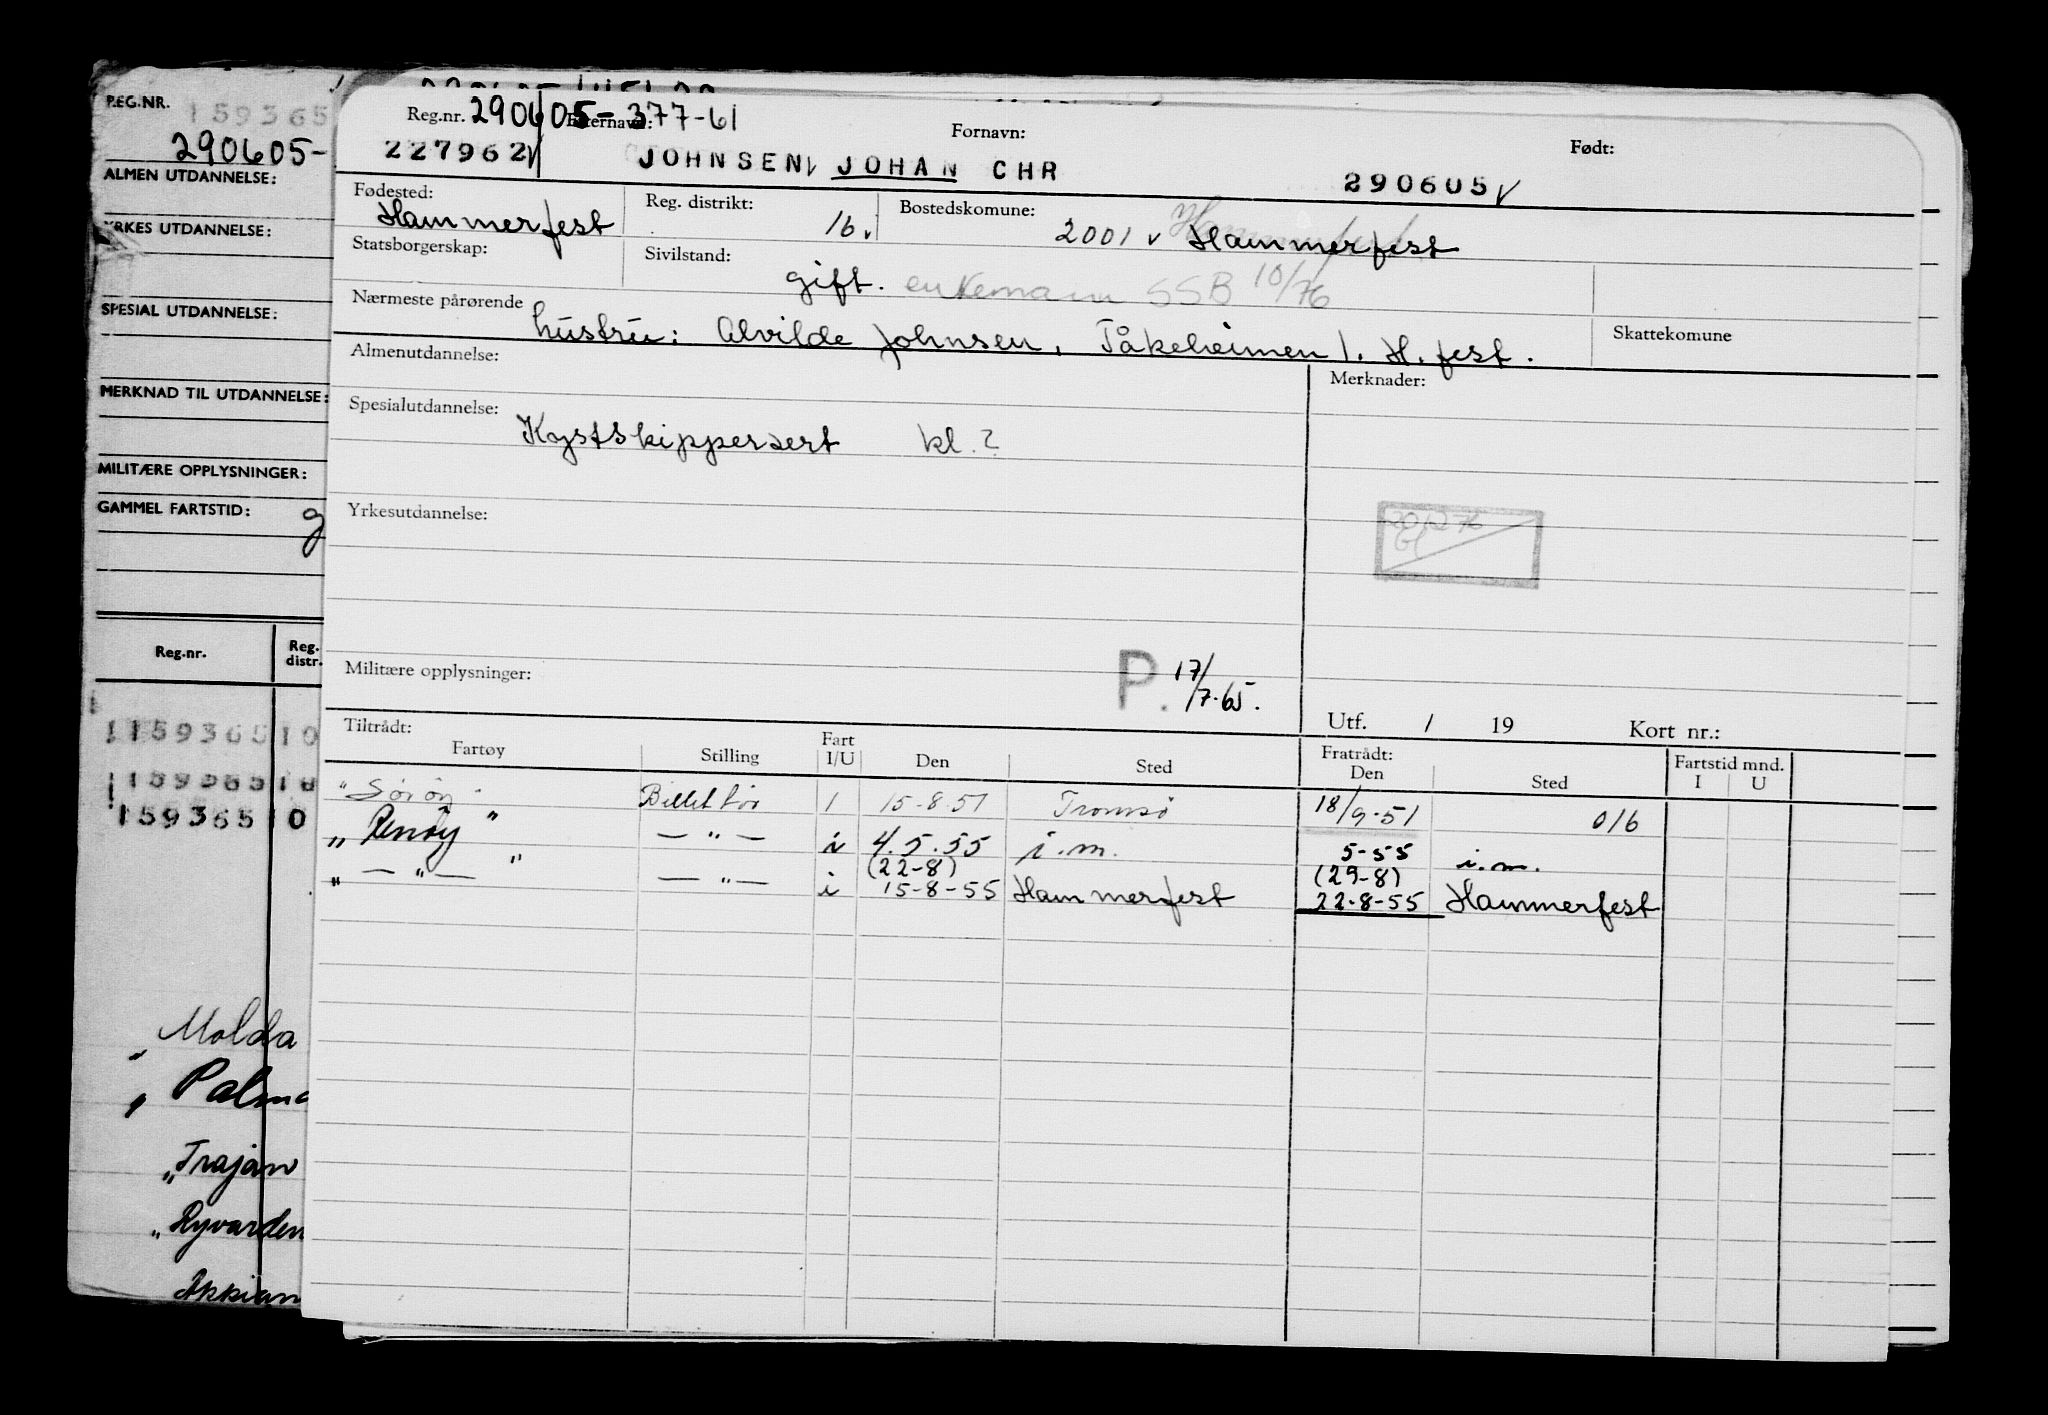 REG.NR.
159365
290605-
ALMEN UTDANNELSE:
YRKES UTDANNELSE:
SPESIAL UTDANNELSE:
MERKNAD TIL UTDANNELSE:
MILITÆRE OPPLYSNINGER:
GAMMEL FARTSTID: g
Reg.nr. Reg. distr.
159365 10
159365 10
159365 10
Molda
" Palma
" Trajan
" Ryvarden
Akkian
Reg.nr. 290605-377-61 Etternavn: Fornavn: Født:
227962 JOHNSEN, JOHAN CHR 290605
Fødested: Reg. distrikt: Bostedskomune:
Hammerfest 16. 2001 Hammerfest
Statsborgerskap: Sivilstand:
gift. enkemann SSB 10/76
Nærmeste pårørende Skattekomune
hustru: Alvilde Johnsen, Tåkeheimen 1. H.fest.
Almenutdannelse: Merknader:
Spesialutdannelse:
Kystskippersert kl. ?
Yrkesutdannelse:
Militære opplysninger: P. 17/7.65.
Utf. / 19 Kort nr.:
Tiltrådt: Fratrådt: Fartstid mnd.
Fartøy Stilling Fart I/U Den Sted Den Sted I U
"Sørøy" Billettør 1 15-8-51 Tromsø 18/9-51 0/6
" " — " — i 4.5.55 i.m. 5-55 i.m.
(22-8) (29-8)
" — " — — " — i 15-8-55 Hammerfest 22-8-55 Hammerfest